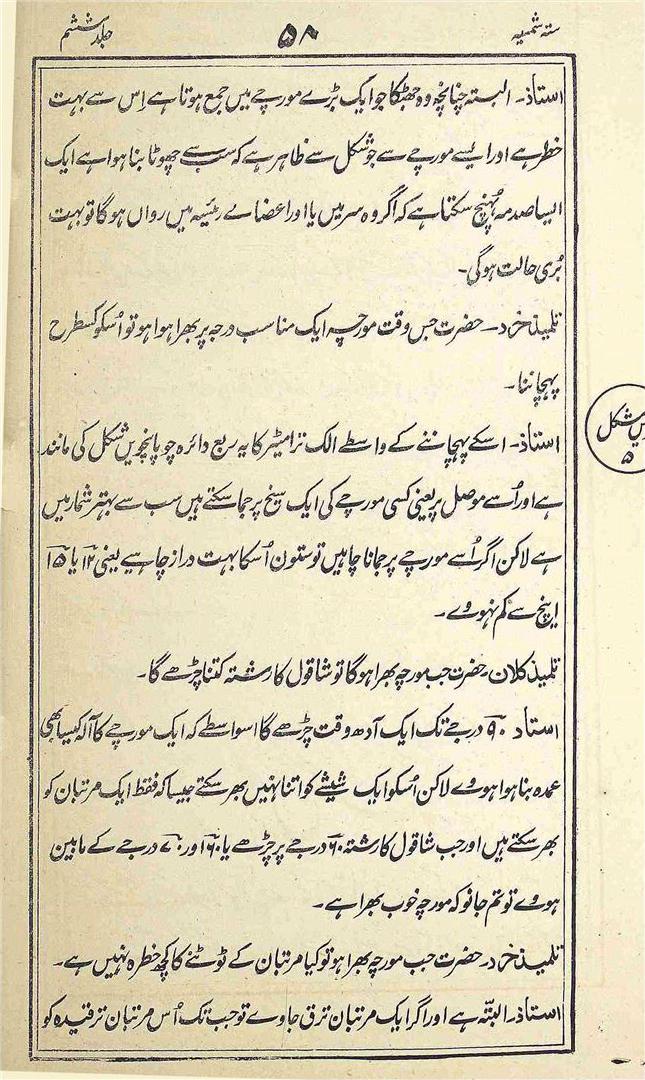 ستہ شمسیہ
۵۸
جلد ششم
استاذ۔ البتہ چنانچہ وہ جھٹکا جو ایک بڑے مورچے میں جمع ہوتا ہے اِس سے بہت
خطر ہے اور ایسے مورچے سے جو شکل سے ظاہر ہے کہ سب سے چھوٹا بنا ہوا ہے ایک
ایسا صدمہ پُہنچ سکتا ہے کہ اگر وہ سر میں یا اور اعضاے رئیسہ میں رواں ہوگا تو بہت
بُری حالت ہوگی۔
تلمیذ خرد۔ حضرت جس وقت مورچہ ایک مناسب درجہ پر بھرا ہوا ہو تو اُسکو کسطرح
پہچاننا۔
استاذ۔ اسکے پہچاننے کے واسطے الک ترامیٹر کا یہ ربع دائرہ جو پانچویں شکل کی مانند
ہے اور اُسے موصل پر یعنی کسی مورچے کی ایک سیخ پر جما سکتے ہیں سب سے بہتر شمار میں
ہے لاکن اگر اُسے مورچے پر جمانا چاہیں تو ستون اُسکا بہت دراز چاہیے یعنی ۱۲ یا ۱۵
اینچ سے کم نہووے۔
تلمیذ کلان۔ حضرت جب مورچہ بھرا ہوگا تو شاقول کا رشتہ کتنا چڑھے گا۔
استاد ۹۰ درجے تک ایک آدھ وقت چڑھے گا اسواسطے کہ ایک مورچے کا آلہ کیسا بھی
عمدہ بنا ہوا ہووے لاکن اُسکو ایک شیشے کو اتنا نہیں بھر سکتے جیسا کہ فقط ایک مرتبان کو
بھر سکتے ہیں اور جب شاقول کا رشتہ ۶۰ درجے پر چڑھے یا ۶۰ اور ۷۰ درجے کے مابین
ہووے تو تم جانو کہ مورچہ خوب بھرا ہے۔
تلمیذ خرد۔ حضرت جب مورچہ بھرا ہو تو کیا مرتبان کے ٹوٹنے کا کچھ خطرہ نہیں ہے۔
استاذ۔ البتّہ ہے اور اگر ایک مرتبان ترق جاوے تو جب تک اُس مرتبان ترقیدہ کو
شکل
۵